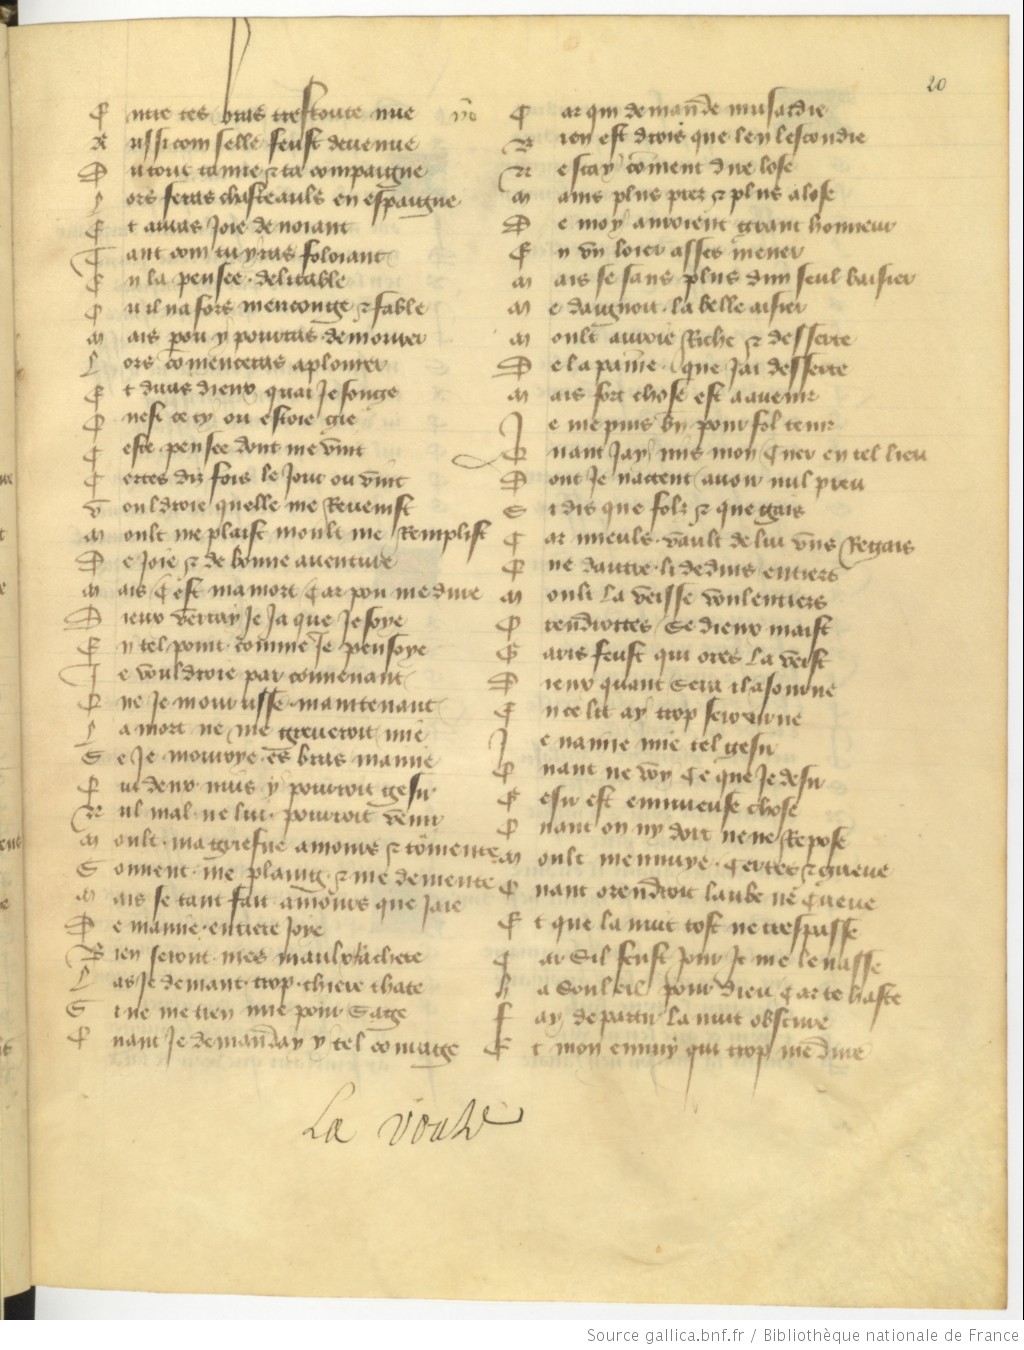 20
E ntre tes bras trestoute nue
A ussi com selle feust devenue
D u tout tamie & ta compaigne
L ors feras chasteauls en espaigne
E t auras Joie de noiant
T ant com tu yras foloiant
E n la pensee delitable
O u il na fors menconge & fable
M ais pou y pourras demourer
L ors comenceras a plourer
E t diras dieux quai Je songe
Q uesi ce cy ou estoie gie
C este pensee dont me vint
C ertes dix fois le Jour ou vint
V ouldroie quelle me Revenist
M oult me plaist moult me Remplist
D e Joie & de bonne aventure
M ais C est ma mort Car pou me dure
D ieux verray Je Ja que Je soye
E n tel point comme Je pensoye
J e vouldroie par convenant
Q ue Je mourusse maintenant
L a mort ne me greveroit mie
S e Je mouroye es bras mamie
N ul mal ne lui pourroit venir
M oult ma griefue amours & tormente
S ouvent me plaing & me demente
M ais se tant fait amours que Jaie
D e mamie entiere Joye
B ien seront mes maulx achete
L as Je demant trop chiere chate
S i ne me tien mie pour Sage
Q uant Je demanday y tel coutrage
C ar qui demande musardie
B ien est drois que len lescondie
N e scay coment dire lose
M ains plus prez & plus alose
D e moy auroient grant honneur
E n un loier asses meneur
M ais se sans plus dun seul baisier
M e daignoit la belle aisier
M oult auroie Riche & desserte
D e la paine que Jai desserte
M ais fort chose est a avenir
J e me puis bn pour fol tenir
Q uant Jay mis mon Cuer en tel lieu
D ont Je nattent avoir nul preu
S i dis que folz & que gars
C ar mieuls vault de lui uns Regars
Q ue dautre li deduis entiers
M oult la veisse voulentiers
O rendroites Se dieux maist
G aris feust qui ores la veist
D ieux quant Sera il aJourne
E n ce lit ay trop seiourne
J e naime mie tel gesir
Q uant ne voy Ce que Je desir
G esir est ennuieuse chose
Q uant on ny dort ne ne Repose
M oult mennuye Certes & grieve
Q uant orendroit laube ne Crieve
E t que la nuit tost ne trespasse
C ar Sil feust Jour Je me levasse
H a Souleil pour dieu Car te haste
F ay departir la nuit obscure
E t mon ennuy qui trop me dure
Source gallica.bnf.fr / Bibliothèque nationale de France